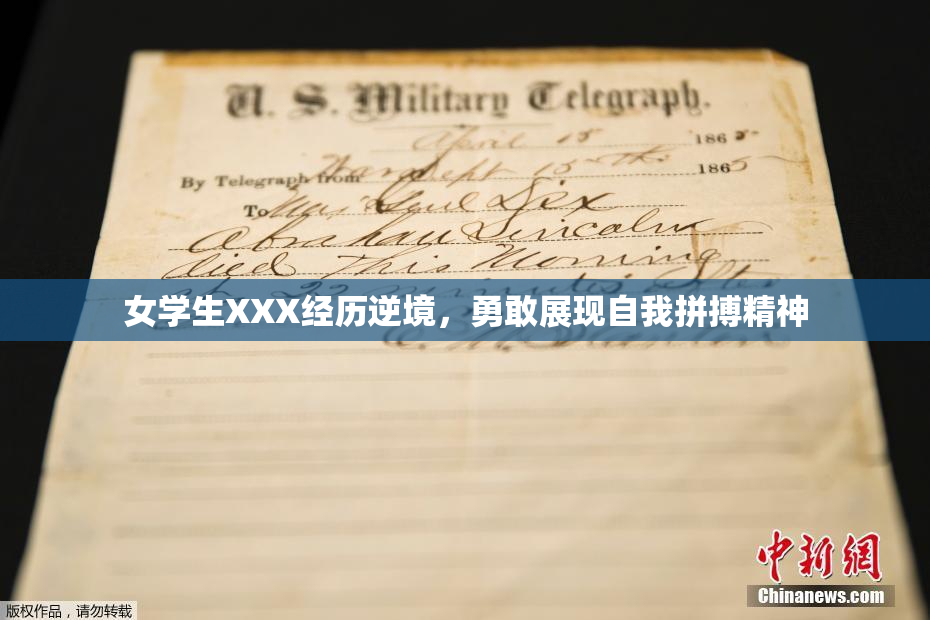 U. S. Military Telegraph.
April 15 1865
By Telegraph from War Dept 15th 1865
To Maj Genl Dix
Abraham Lincoln
died This Morning
at 22 minutes after
女学生XXX经历逆境，勇敢展现自我拼搏精神
E. M. Stanton
中新網
Chinanews.com
版权作品，请勿转载